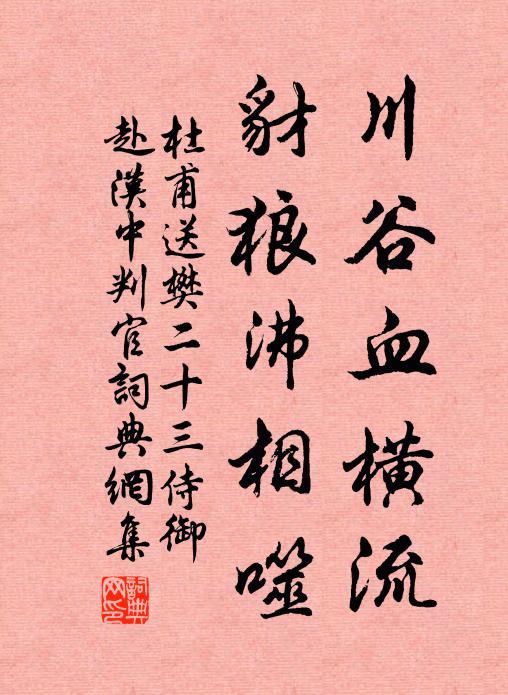 川谷血橫流
豺狼沸相噬
杜甫送樊二十三侍御
赴漢中判官詞典網集
詞典網印